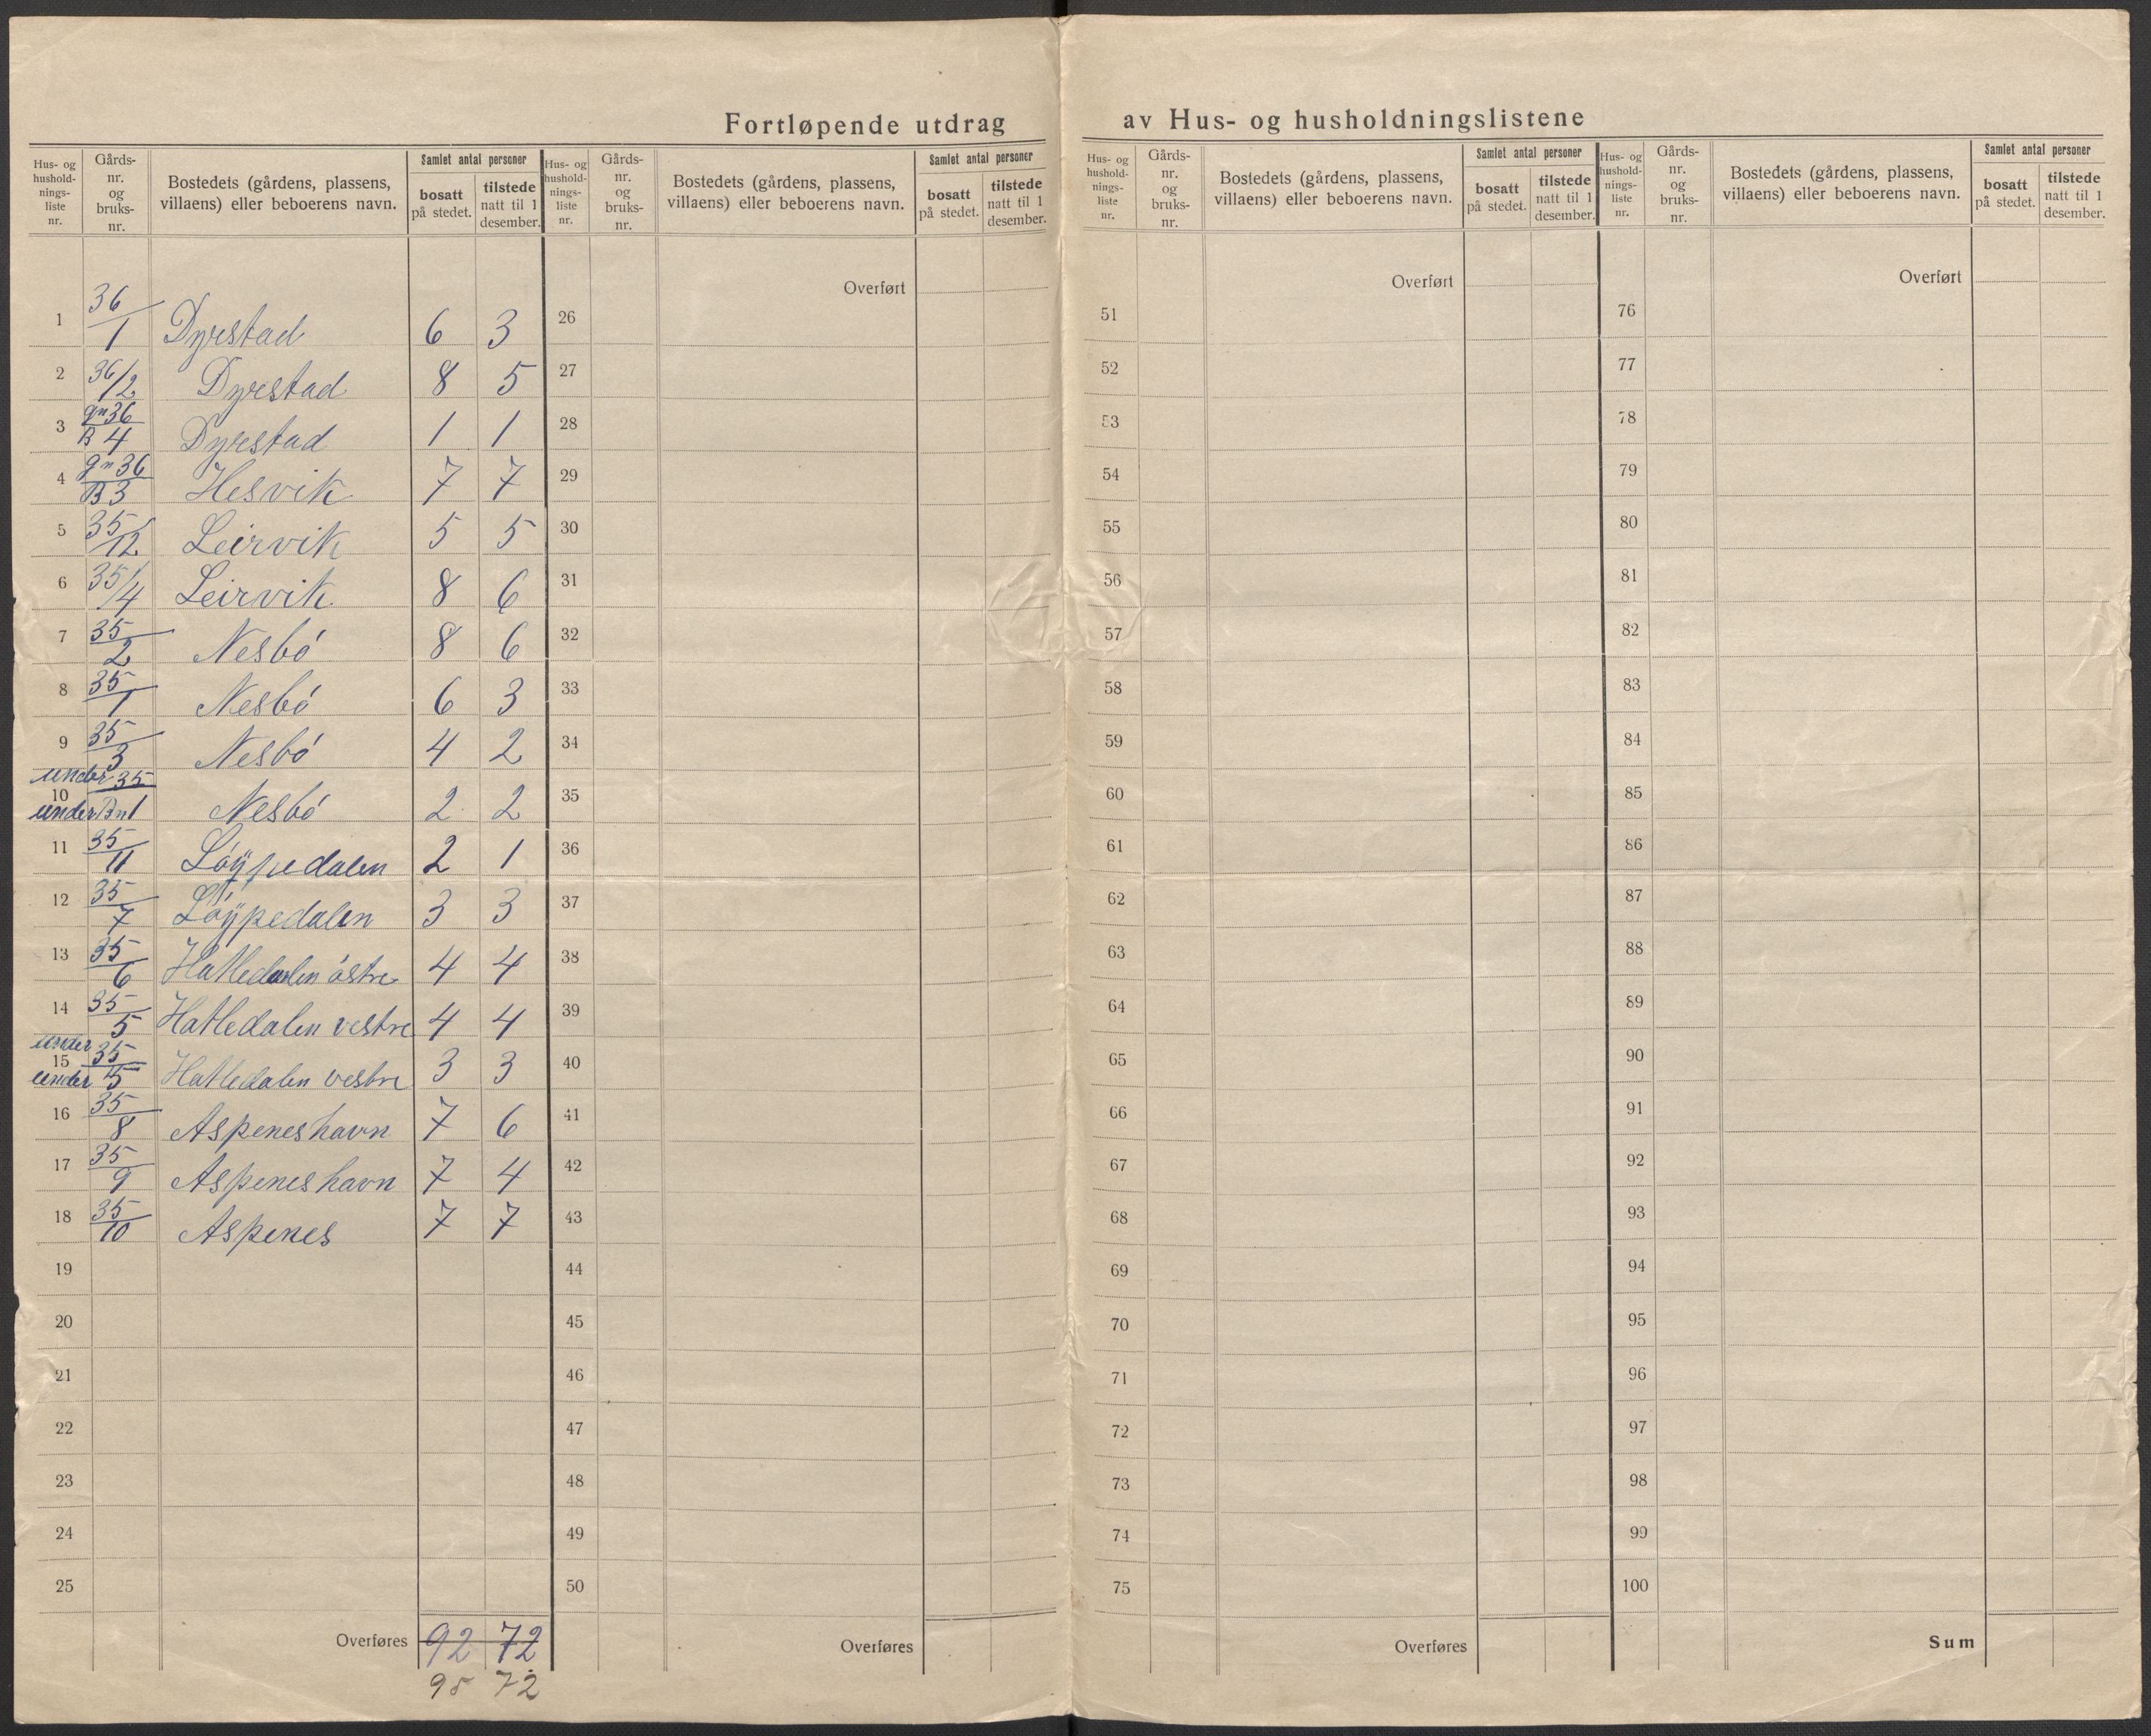 Fortløpende utdrag av Hus- og husholdningslistene
Hus- og hushold-nings-liste nr. | Gårds-nr. og bruks-nr. | Bostedets (gårdens, plassens, villaens) eller beboerens navn. | Samlet antal personer | bosatt på stedet. | tilstede natt til 1 desember.
Hus- og hushold-nings-liste nr. | Gårds-nr. og bruks-nr. | Bostedets (gårdens, plassens, villaens) eller beboerens navn. | Samlet antal personer | bosatt på stedet. | tilstede natt til 1 desember.
Hus- og hushold-nings-liste nr. | Gårds-nr. og bruks-nr. | Bostedets (gårdens, plassens, villaens) eller beboerens navn. | Samlet antal personer | bosatt på stedet. | tilstede natt til 1 desember.
Hus- og hushold-nings-liste nr. | Gårds-nr. og bruks-nr. | Bostedets (gårdens, plassens, villaens) eller beboerens navn. | Samlet antal personer | bosatt på stedet. | tilstede natt til 1 desember.
1 36/1 Dyrestad 6 3
2 36/2 Dyrestad 8 5
3 gn 36/B 4 Dyrestad 1 1
4 gn 36/B 3 Hesvik 7 7
5 35/12 Leirvik 5 5
6 35/4 Leirvik 8 6
7 35/2 Nesbó 8 6
8 35/1 Nesbó 6 3
9 35/3 Nesbó 4 2
under 35
10 under Bn 1 Nesbó 2 2
11 35/11 Lóÿpedalen 2 1
12 35/7 Lóÿpedalen 3 3
13 35/6 Hatledalen óstre 4 4
14 35/5 Hatledalen vestre 4 4
under 35
15 under 5 Hatledalen vestre 3 3
16 35/8 Aspeneshavn 7 6
17 35/9 Aspeneshavn 7 4
18 35/10 Aspenes 7 7
19
20
21
22
23
24
25
Overføres 92 72
95 72
Overført
26
27
28
29
30
31
32
33
34
35
36
37
38
39
40
41
42
43
44
45
46
47
48
49
50
Overføres
Overført
51
52
53
54
55
56
57
58
59
60
61
62
63
64
65
66
67
68
69
70
71
72
73
74
75
Overføres
Overført
76
77
78
79
80
81
82
83
84
85
86
87
88
89
90
91
92
93
94
95
96
97
98
99
100
Sum